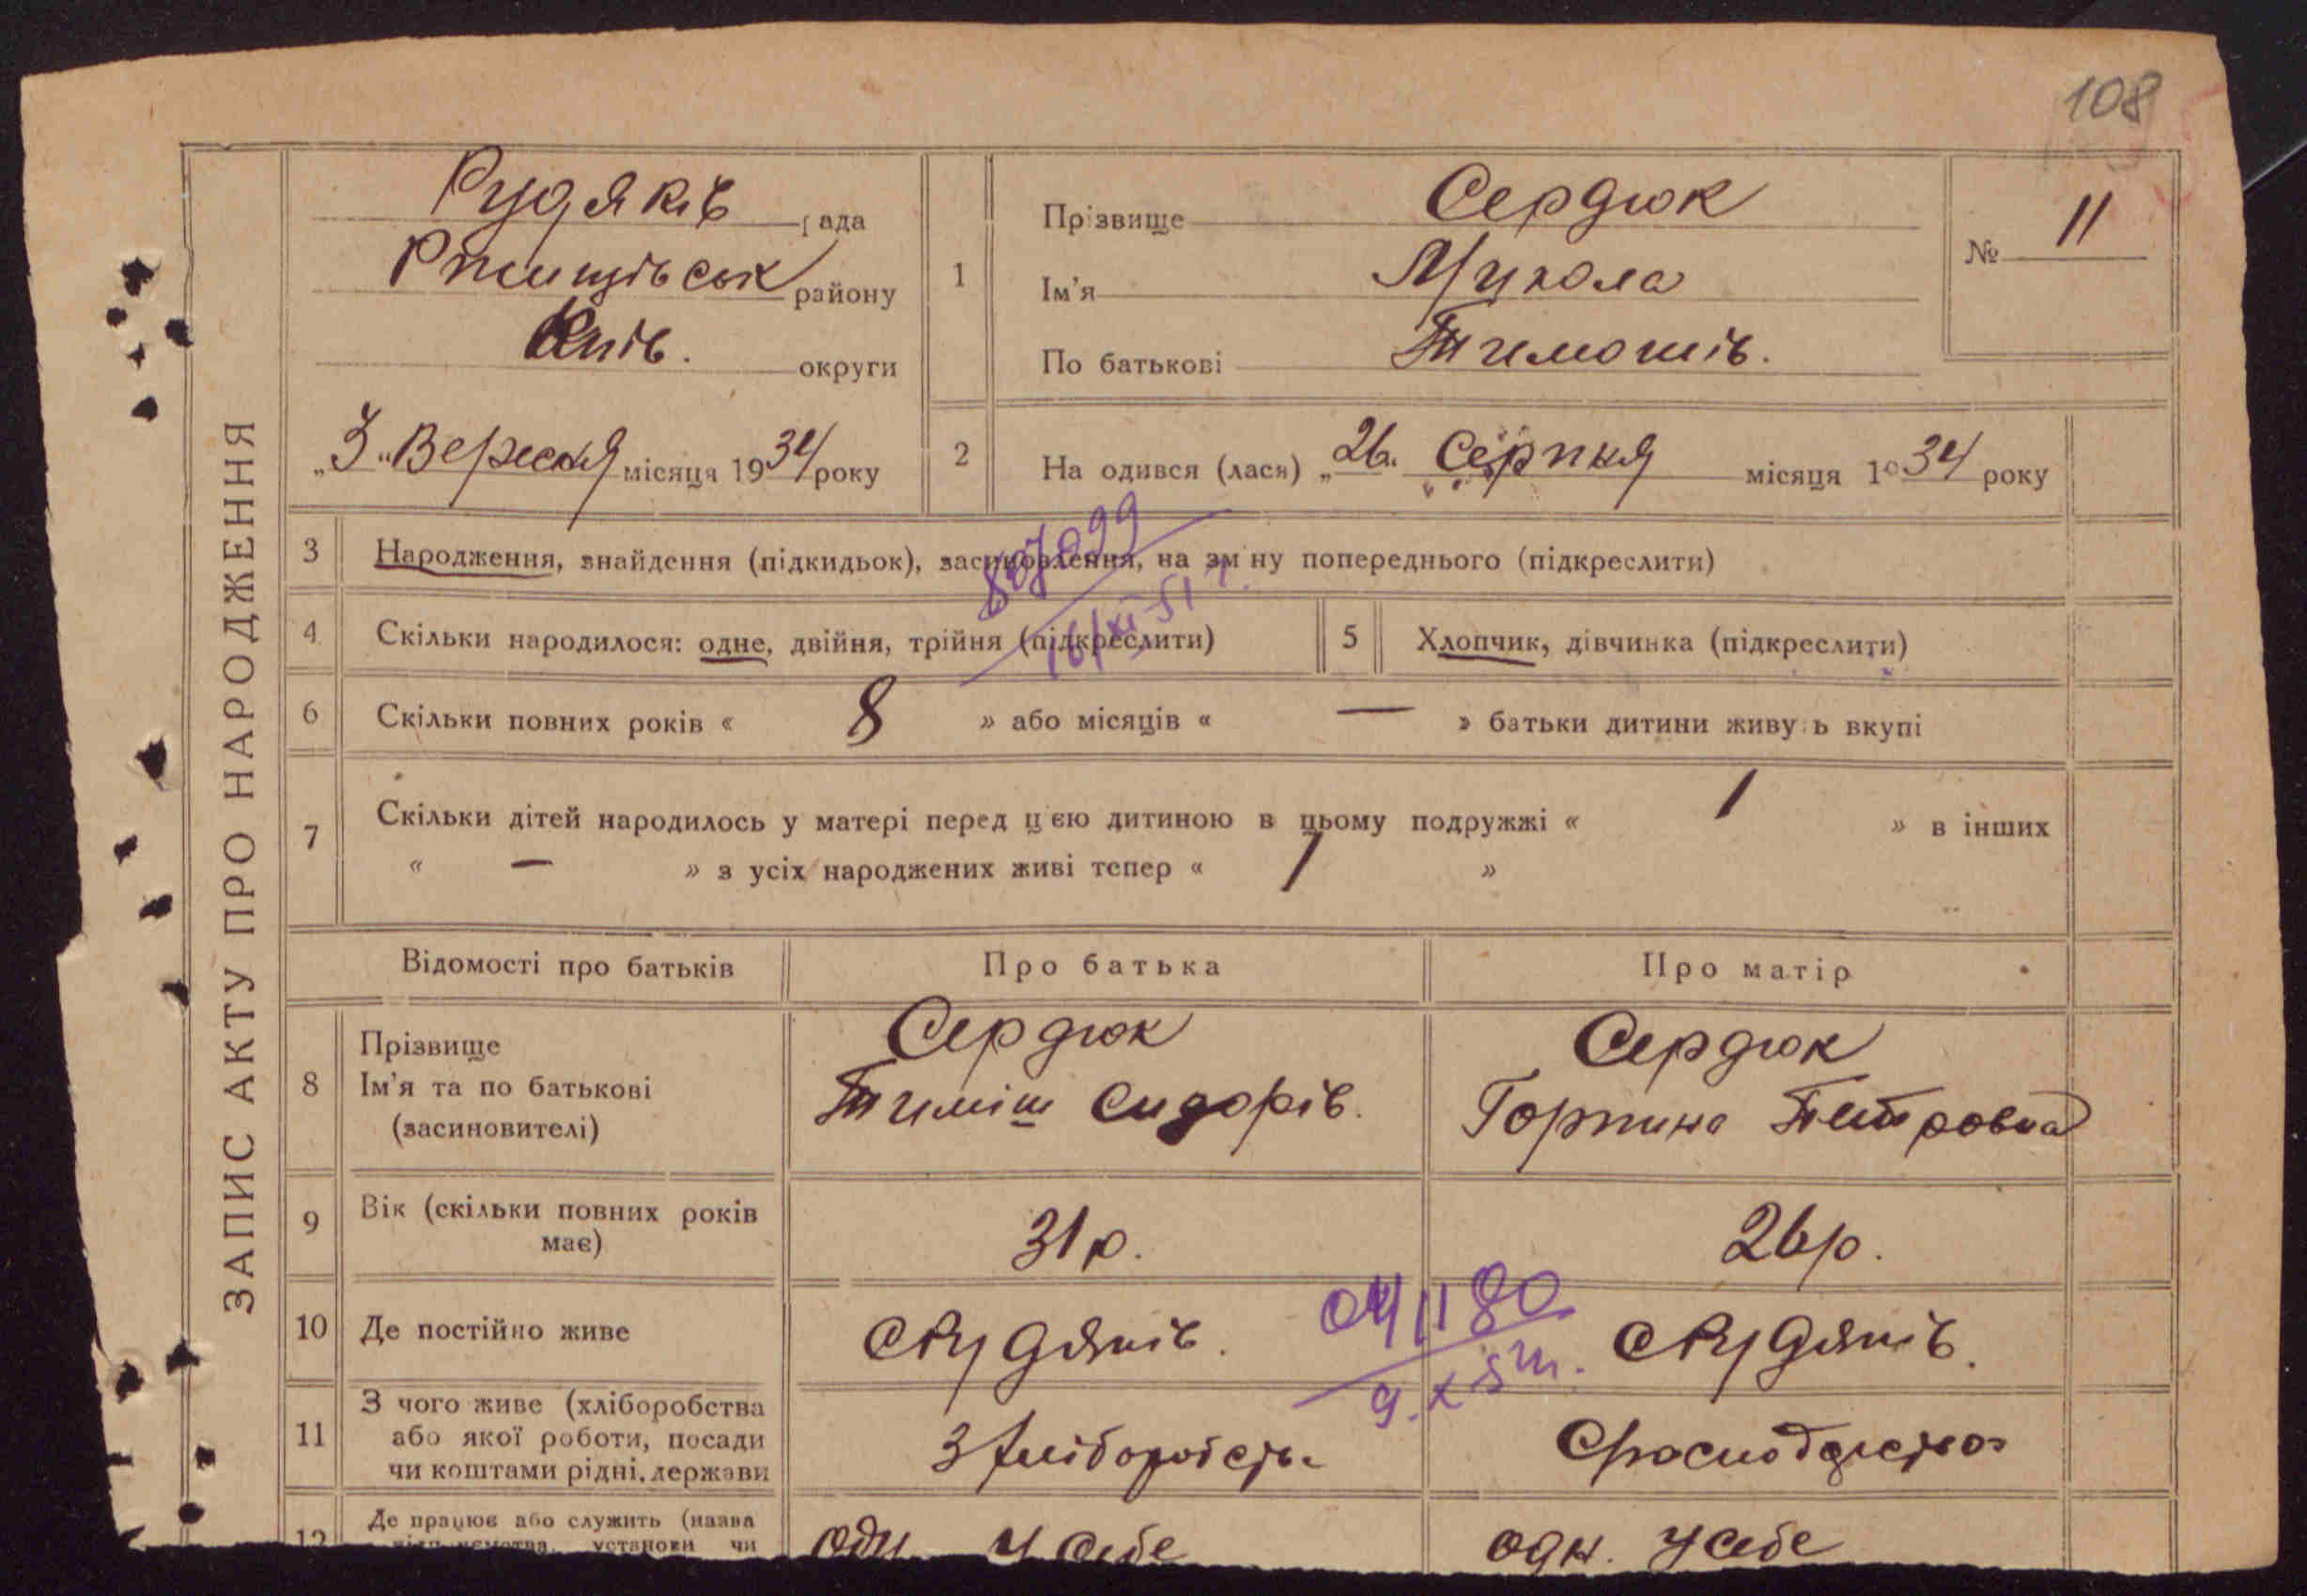 108
ЗАПИС АКТУ ПРО НАРОДЖЕННЯ
Рудяків рада
Ржищівськ району
Київ. округи
„3“ Вересня місяця 1934 року
1
Прізвище Сердюк
Ім'я Микола
По батькові Тимошів.
№ 11
2
На одився (лася) „26“ Серпня місяця 1934 року
3 Народження, знайдення (підкидьок), засиновлення, на зм ну попереднього (підкреслити)
4 Скільки народилося: одне, двійня, трійня (підкреслити)
5 Хлопчик, дівчинка (підкреслити)
6 Скільки повних років « 8 » або місяців « — » батьки дитини живу ь вкупі
7 Скільки дітей народилось у матері перед цією дитиною в цьому подружжі « 1 » в інших
« — » з усіх народжених живі тепер « 1 »
Відомості про батьків Про батька Про матір
8
Прізвище
Ім'я та по батькові
(засиновителі)
Сердюк
Тиміш Сидорів.
Сердюк
Горпина Петровна
9 Вік (скільки повних років
має)
31 р.
26 р.
10 Де постійно живе
с Рудяків.
с Рудяків.
041180
11
З чого живе (хліборобства
або якої роботи, посади
чи коштами рідні, держави
З
12 Де працює або служить (назва
установи чи
одн. у себе
одн. у себе